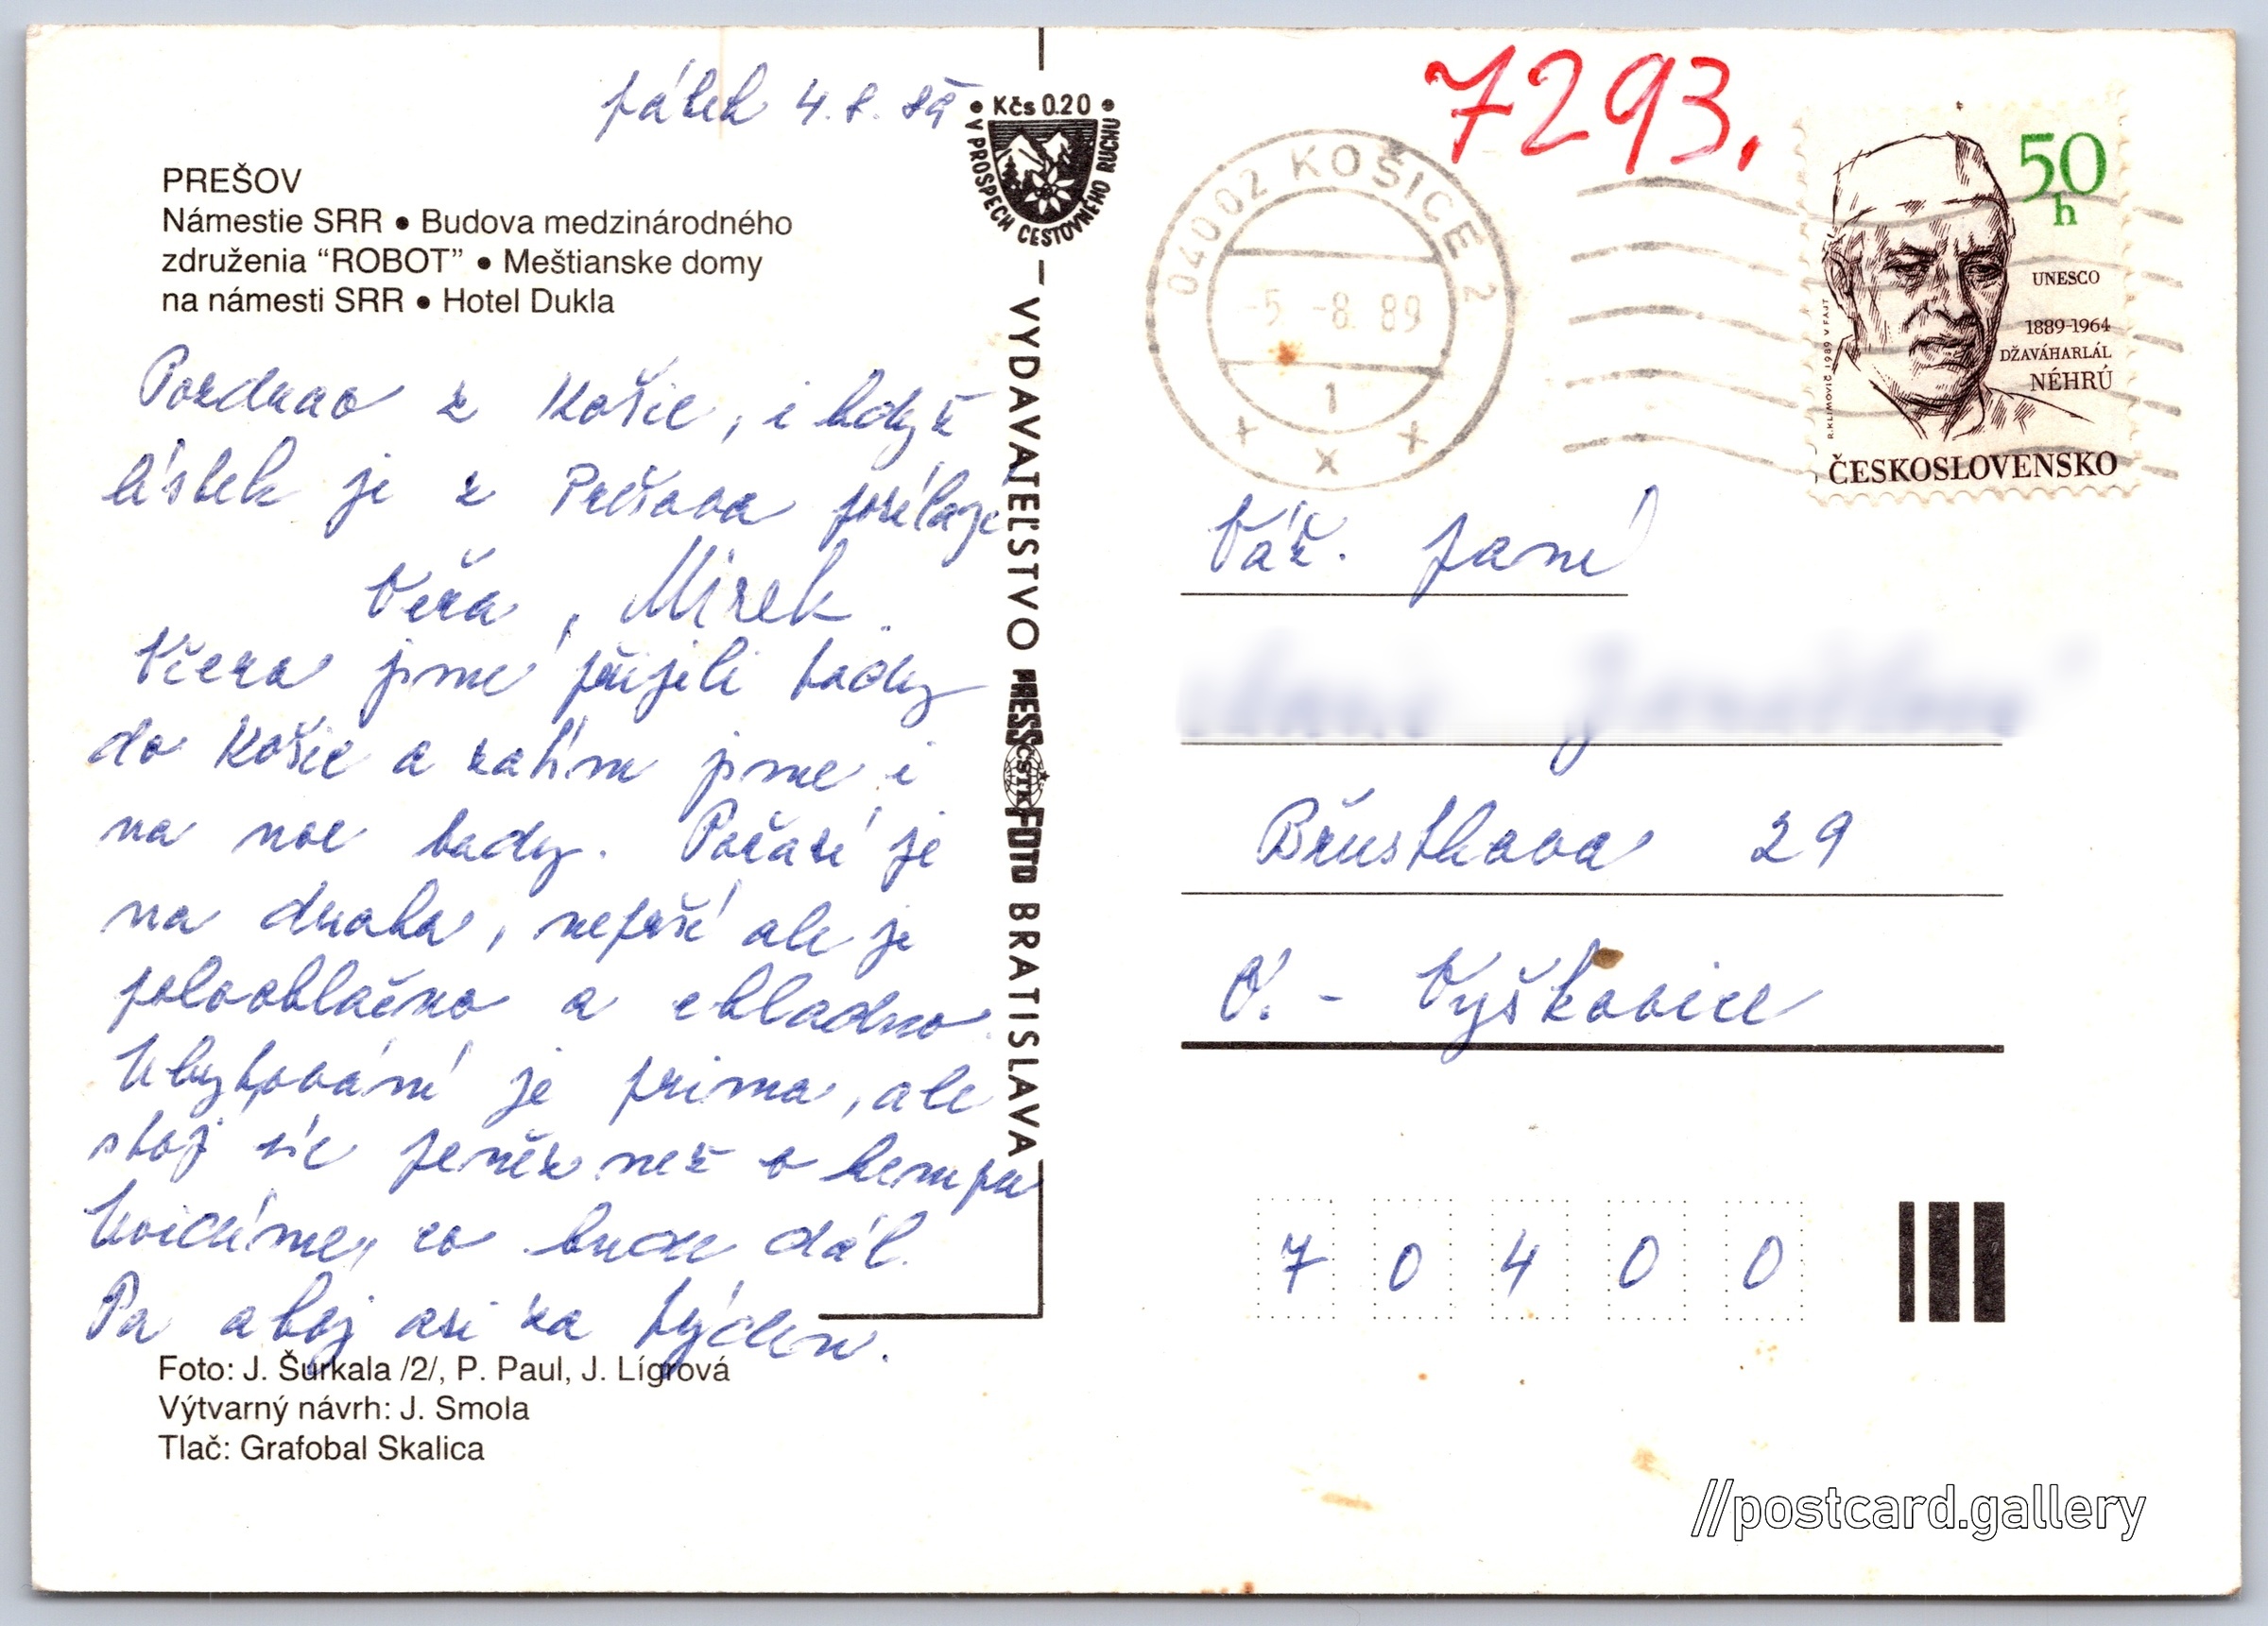 pátek 4.8.89
Kčs 0.20
V PROSPECH CESTOVNÉHO RUCHU
PREŠOV
Námestie SRR • Budova medzinárodného
združenia “ROBOT” • Meštianske domy
na námesti SRR • Hotel Dukla
Pozdrav z Košic, i když
lístek je z Prešova posílají
Věra, Mirek.
Včera jsme přijeli tady
do Košic a zatím jsme i
na noc tady. Počasí je
na draka, neprší ale je
polooblačno a chladno.
Ubytování je prima, ale
stojí víc peněz než v kempu
Uvidíme, co bude dál.
Pa ahoj asi za týden.
Foto: J. Šurkala /2/, P. Paul, J. Lígrová
Výtvarný návrh: J. Smola
Tlač: Grafobal Skalica
VYDAVATEĽSTVO PRESSFOTO BRATISLAVA
ČSTK
7293.
040 02 KOŠICE 2
-5. -8. 89
1
50
h
UNESCO
1889-1964
DŽAVÁHARLÁL
NÉHRÚ
R. KLIMOVIČ 1989 V FAJT
ČESKOSLOVENSKO
Váž. paní
Břustkova 29
O. - Výškovice
7 0 4 0 0
//postcard.gallery